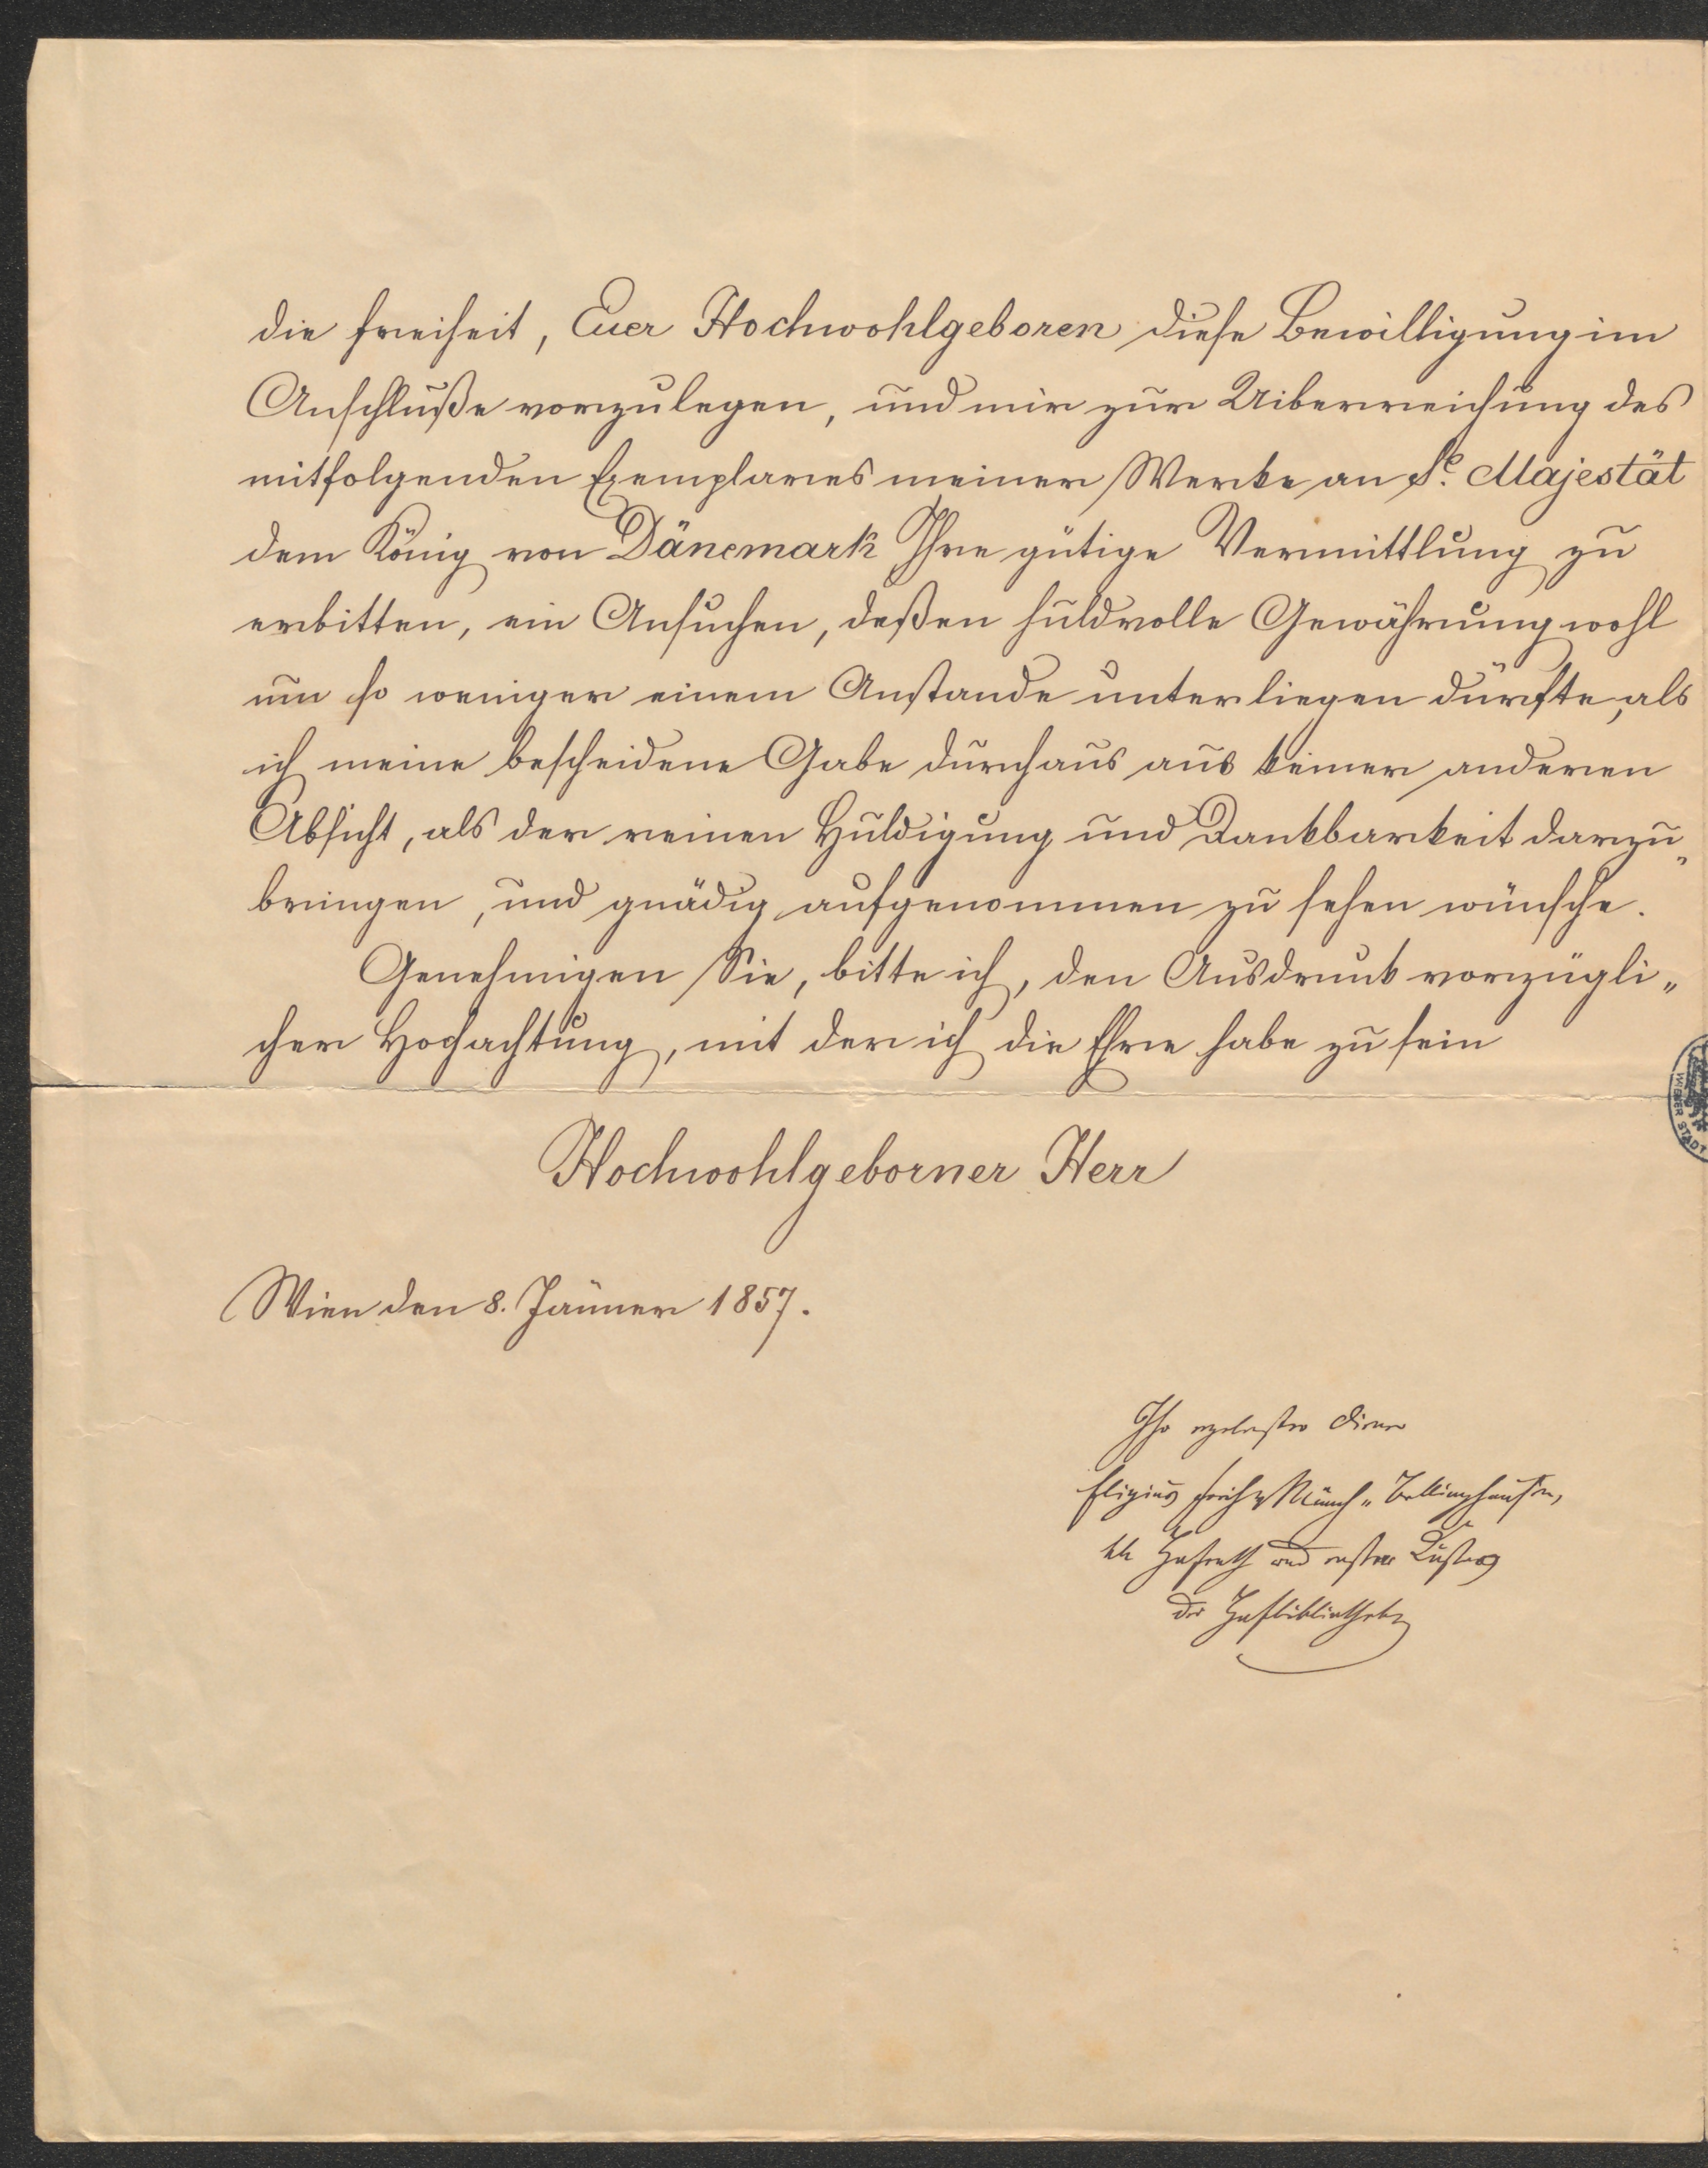 die Freiheit, Euer Hochwohlgeboren diese Bewilligung im
Anschluße vorzulegen, und mir zur Uiberreichung des
mitfolgenden Exemplares meiner Werke an Se. Majestät
dem König von Dänemark Ihre gütige Vermittlung zu
erbitten, ein Ansuchen, deßen huldvolle Gewährung wohl
um so weniger einem Anstande unterliegen dürfte, als
ich meine bescheidene Gabe durchaus aus keiner anderen
Absicht, als der reinen Huldigung und Dankbarkeit darzu„
bringen, und gnädig aufgenommen zu sehen wünsche.
Genehmigen Sie, bitte ich, den Ausdruck vorzügli„
cher Hochachtung, mit der ich die Ehre habe zu sein
Hochwohlgeborner Herr
Wien den 8. Jänner 1857.
Ihr ergebenster Diener
Eligius Freih v Münch„Bellinghausen,
kk Hofrath und erster Custos
der Hofbibliothek
WIENER STADT